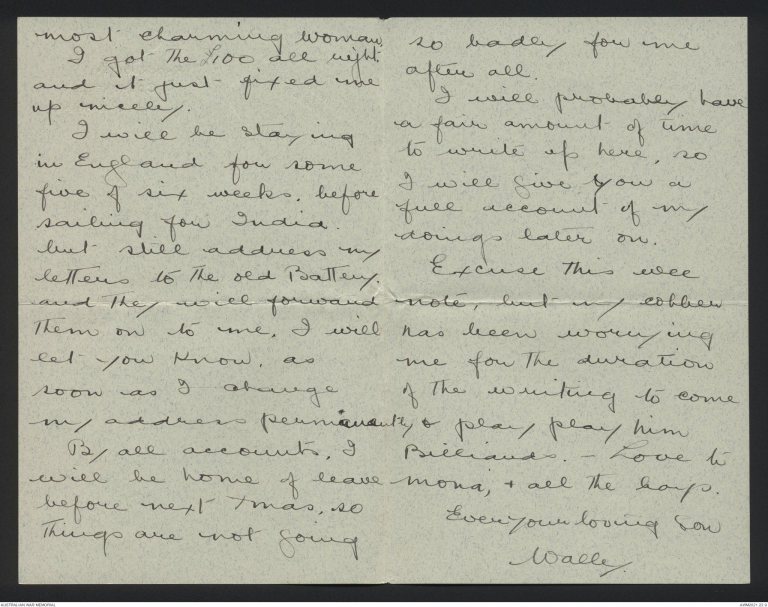 most charming woman.
I got the £100 all right
and it just fixed me
up nicely.
I will be staying
in England for some
five of six weeks, before
sailing for India.
but still address my
letters to the old Battery,
and they will forward
them on to me. I will
let you know, as
soon as I change
my address permanantly
By all accounts, I
will be home of leave
before next Xmas, so
things are not going
so badly for me
after all.
I will probably have
a fair amount of time
to write up here, so
I will give you a
full account of my
doings later on.
Excuse this wee
note, but my cobber
has been worrying
me for the duration
of the writing to come
& play play him
Billiards. - Love to
Mona, + all the boys.
Ever your loving Son
Wally.
AUSTRALIAN WAR MEMORIAL